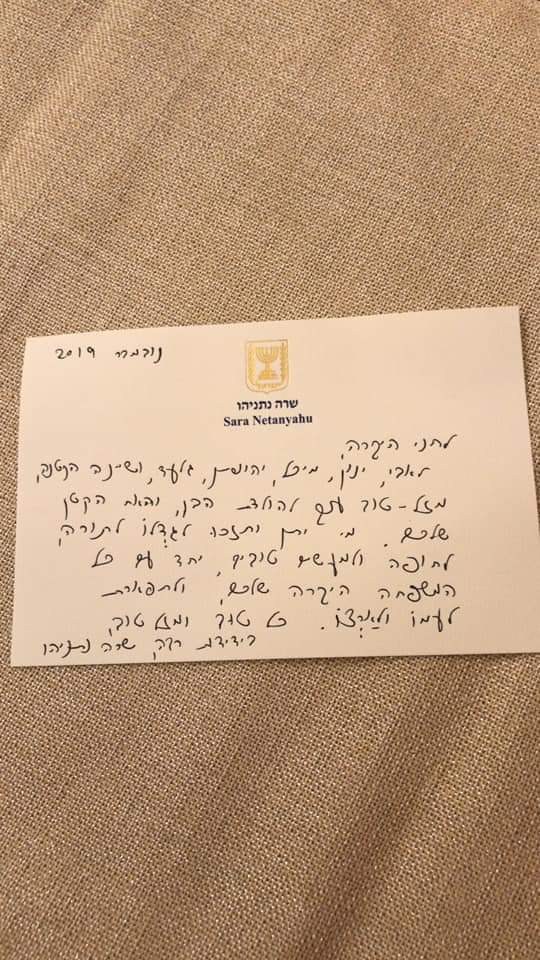 נובמבר 2019
שרה נתניהו
Sara Netanyahu
לחני היקרה,
לאבי, ינון, מיכל, יהונתן, גלעד, ושינה הקטנה,
מזל-טוב ענק להולדת הבן, והאח הקטן
שלכם. מי יתן ותזכו לגדלו לתורה,
לחופה ולמעשים טובים, יחד עם כל
המשפחה היקרה שלכם, ולתפארת
לעמו ולארצו. כל טוב ומזל טוב,
בידידות רבה, שרה נתניהו